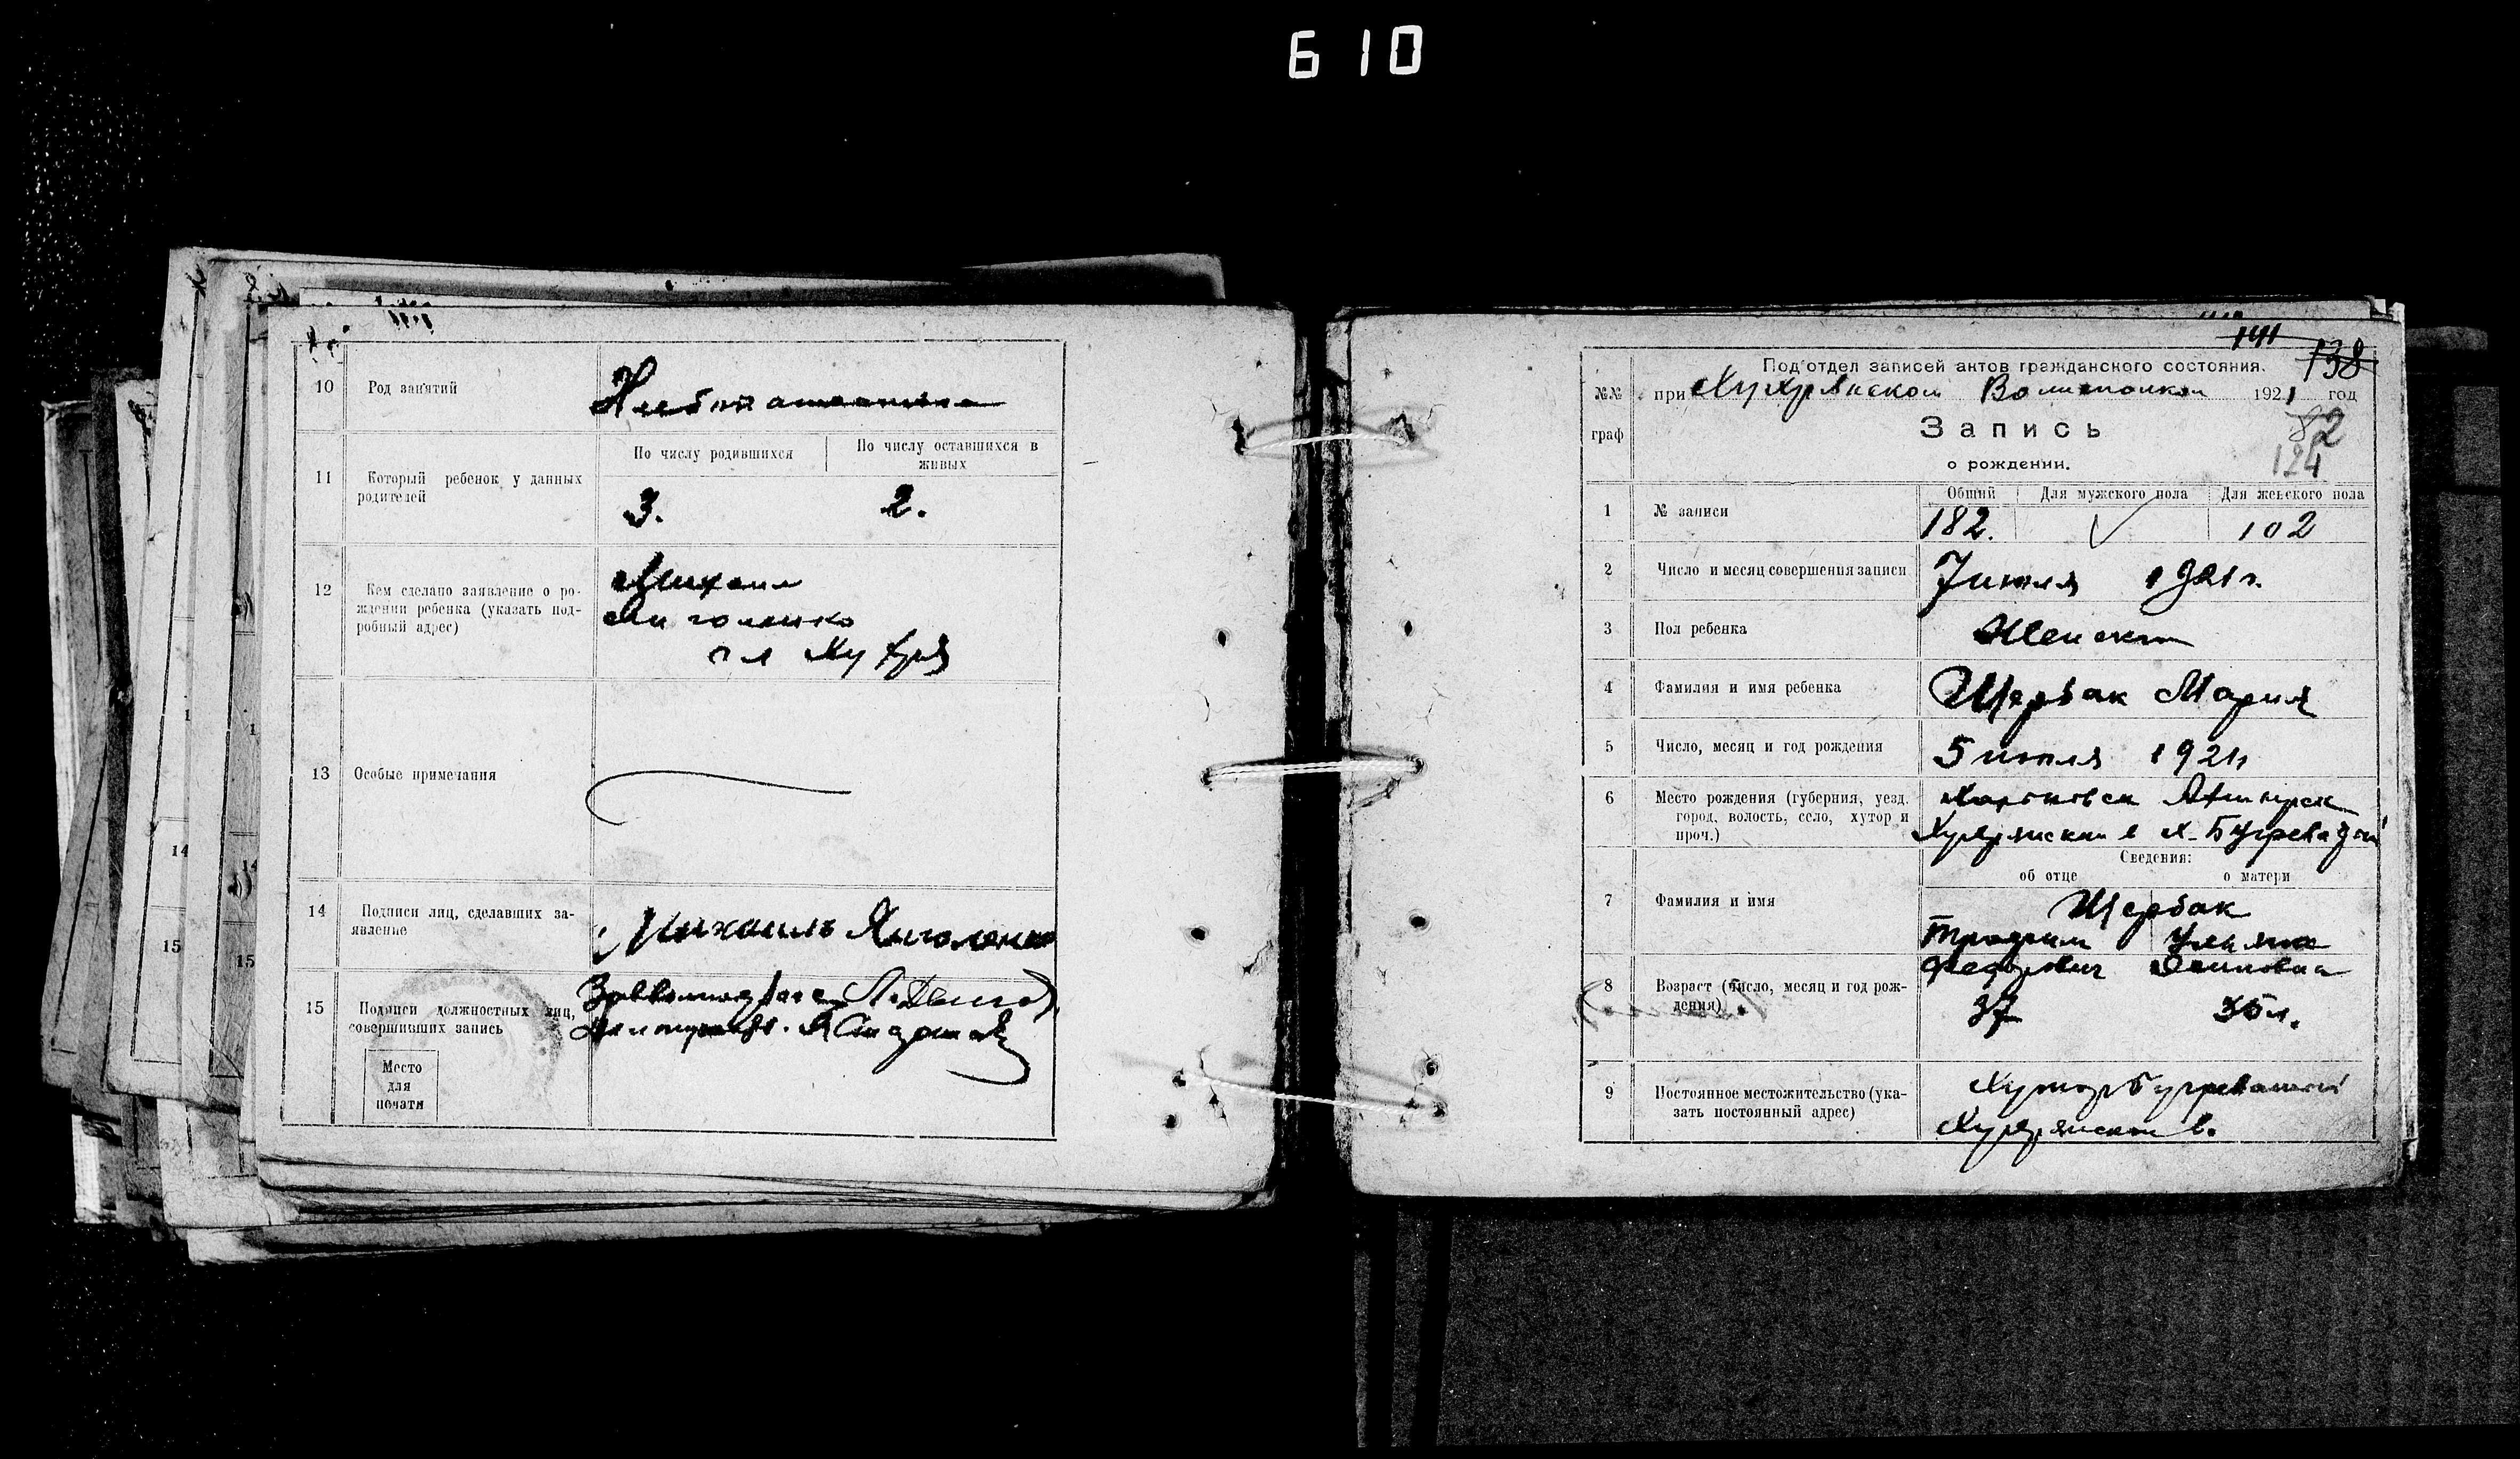 610
10 Род занятий
Хлебопашество
11 Который ребенок у данных
родителей
По числу родившихся
По числу оставшихся в
живых
3. 2.
12 Кем сделано заявление о ро-
ждении ребенка (указать под-
робный адрес)
Михаил
Янголенко
сл Хухря
13 Особые примечания
14 Подписи лиц, сделавших за-
явление
Михаилъ Янголенко
15 Подписи должностных лиц,
совершивших запись
Место
для
печати
141
138
Подотдел записей актов гражданского состояния.
№№
граф
при Хухрянском Волисполком 1921 год
Запись
82
124
о рождении.
1 № записи
Общий Для мужского пола Для женского пола
182. 102
2 Число и месяц совершения записи
7 июля 1921 г.
3 Пол ребенка
Женский
4 Фамилия и имя ребенка
Щербак Мария
5 Число, месяц и год рождения
5 июля 1921г
6 Место рождения (губерния, уезд,
город, волость, село, хутор и
проч.)
Харьковск Ахтырск
Хухрянской в х.
Сведения:
об отце о матери
7 Фамилия и имя
Щербак
Трофим
Федорович
8 Возраст (число, месяц и год рож-
дения)
37
9 Постоянное местожительство (ука-
зать постоянный адрес)
Хутор
Хухрянской в.